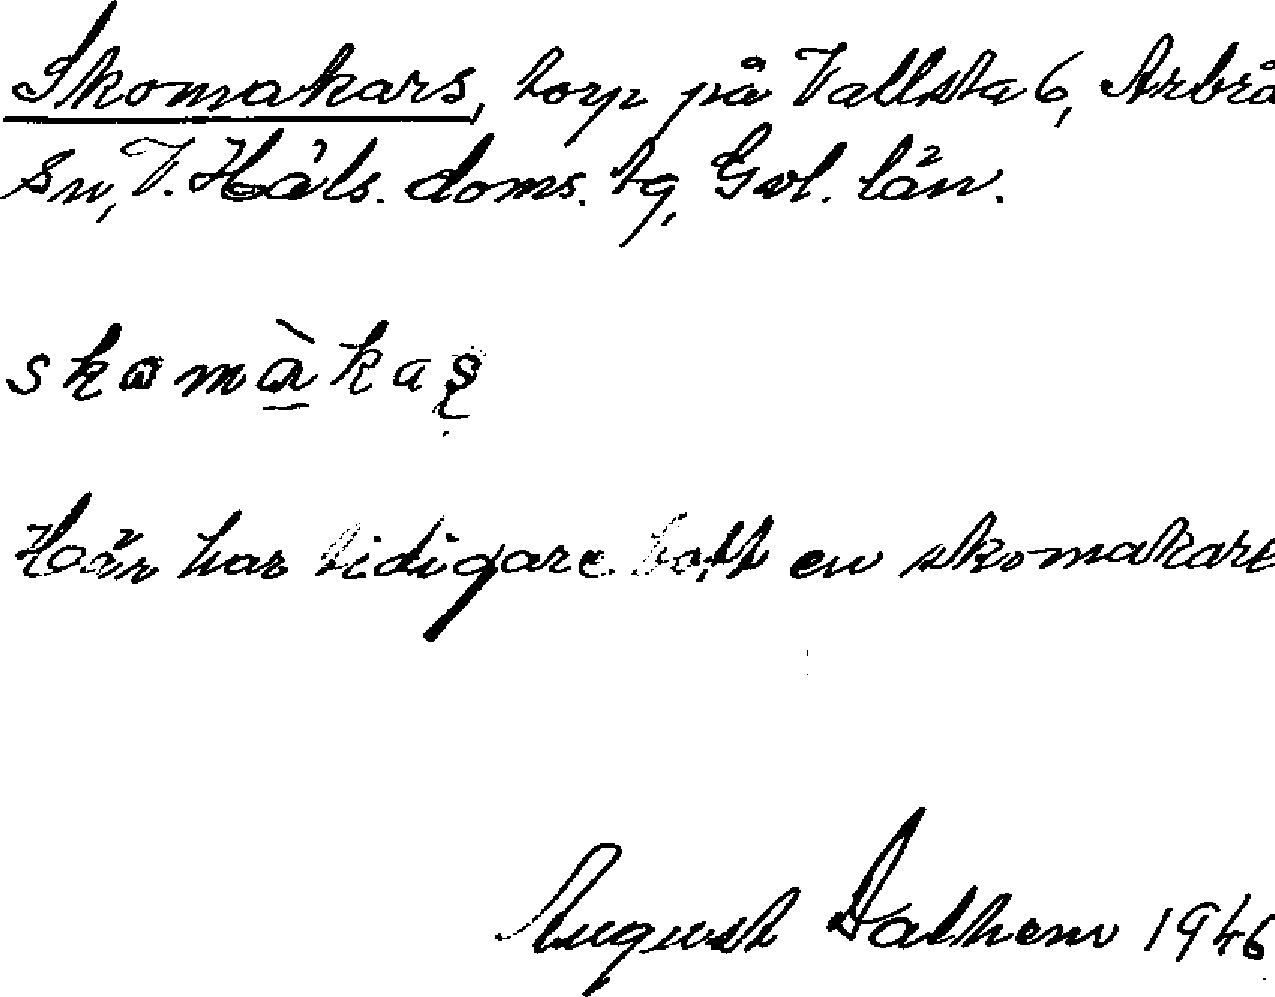 Skomakars, torp på Vallsta 6, Arbrå
sn, V. Häls. doms. tg, Gvl. län.
skomàkaʂ
Här har tidigare bott en skomakare
August Dalhem 1946